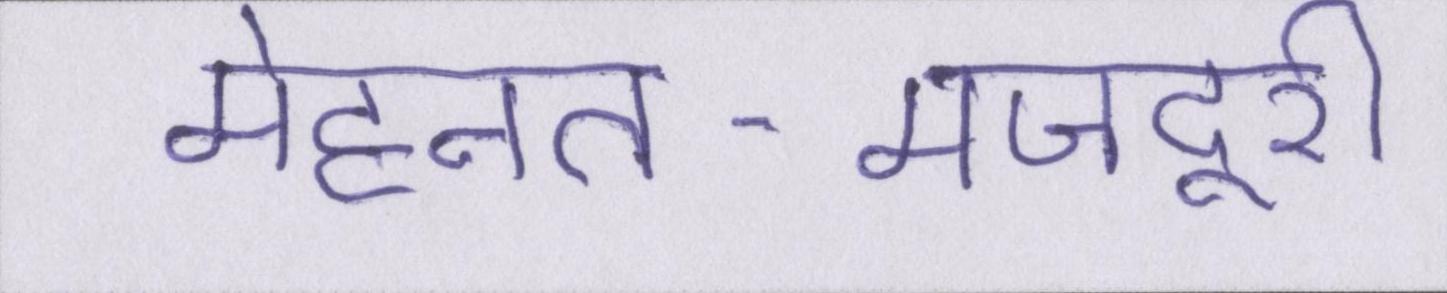 मेहनत-मजदूरी